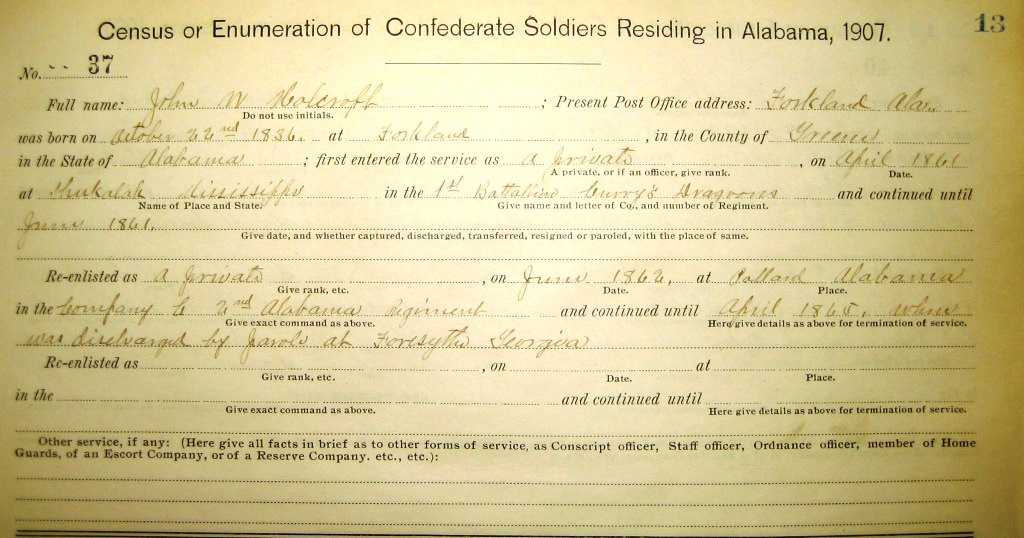 Census or Enumeration of Confederate Soldiers Residing in Alabama, 1907.
13
No. 37
Full name: John W Holcroft ; Present Post Office address: Forkland Ala.
Do not use initials.
was born on October 22nd 1836. at Forkland , in the County of Greene
in the State of Alabama ; first entered the service as A private , on April 1861
A private, or if an officer, give rank. Date.
at Shukalak Mississippi in the 1st Battallion Curry's Dragoons and continued until
Name of Place and State. Give name and letter of Co., and number of Regiment.
June 1861.
Give date, and whether captured, discharged, transferred, resigned or paroled, with the place of same.
Re-enlisted as A private , on June 1862, at Pollard Alabama
Give rank, etc. Date. Place.
in the Company C 2nd Alabama Regiment and continued until April 1865, when
Give exact command as above. Here give details as above for termination of service.
was discharged by parole at Foresythe Georgia
Re-enlisted as , on at
Give rank, etc. Date. Place.
in the and continued until
Give exact command as above. Here give details as above for termination of service.
Other service, if any: (Here give all facts in brief as to other forms of service, as Conscript officer, Staff officer, Ordnance officer, member of Home
Guards, of an Escort Company, or of a Reserve Company. etc., etc.):